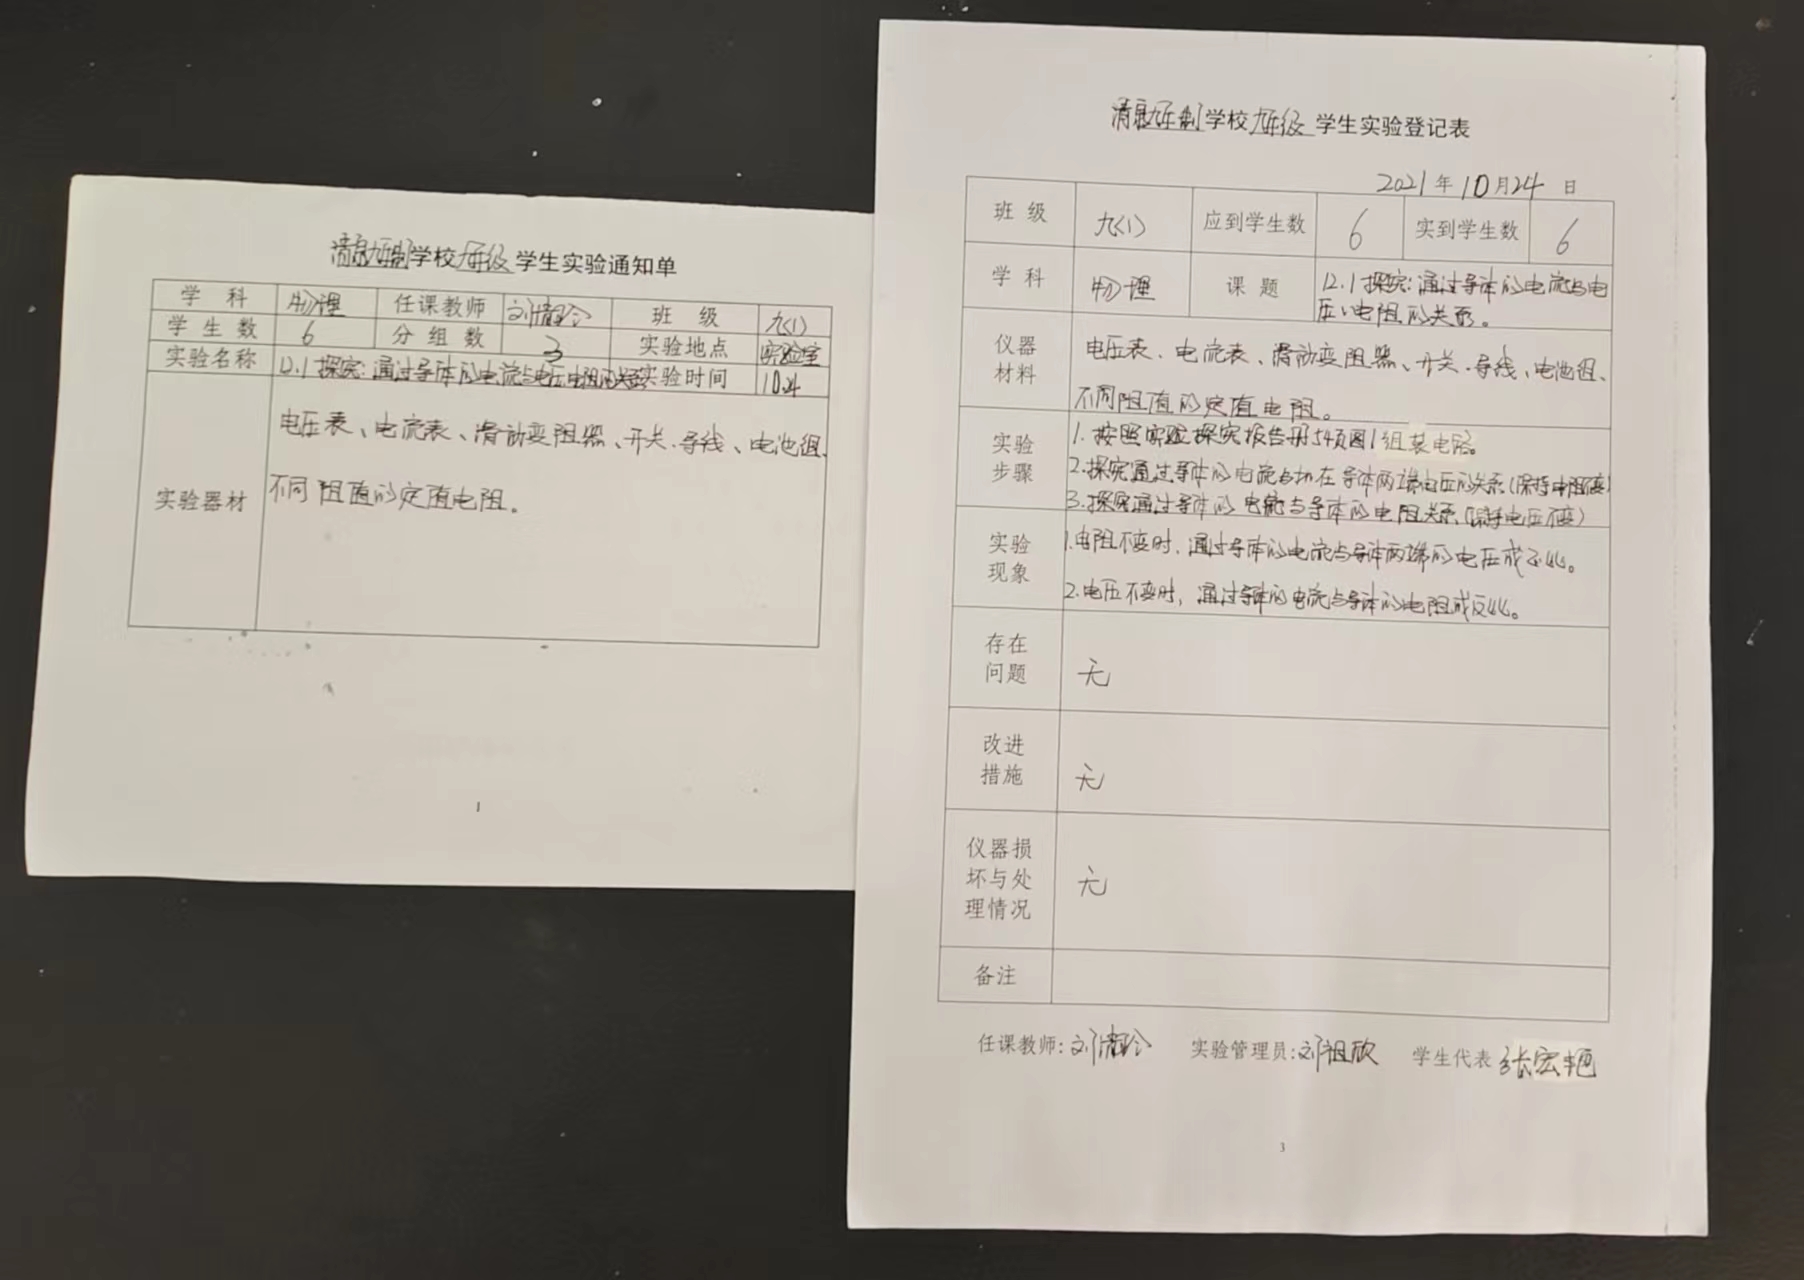 清泉九年制学校九年级学生实验通知单
学科 物理 任课教师 班级 九(1)
学生数 6 分组数 3 实验地点 实验室
实验名称 12.1探究:通过导体的电流与电压、电阻的关系 实验时间 10.24
实验器材 电压表、电流表、滑动变阻器、开关、导线、电池组、
不同阻值的定值电阻。
1
清泉九年制学校九年级学生实验登记表
2021年10月24日
班级 九(1) 应到学生数 6 实到学生数 6
学科 物理 课题 12.1探究:通过导体的电流与电
压、电阻的关系。
仪器材料 电压表、电流表、滑动变阻器、开关、导线、电池组、
不同阻值的定值电阻。
实验步骤 1.按照实验探究报告册54页图1组装电路。
2.探究通过导体的电流与加在导体两端电压的关系(保持电阻不变)
3.探究通过导体的电流与导体的电阻关系(保持电压不变)
实验现象 1.电阻不变时,通过导体的电流与导体两端的电压成正比。
2.电压不变时,通过导体的电流与导体的电阻成反比。
存在问题 无
改进措施 无
仪器损坏与处理情况 无
备注
任课教师: 实验管理员:刘祖欣 学生代表 张宏艳
3